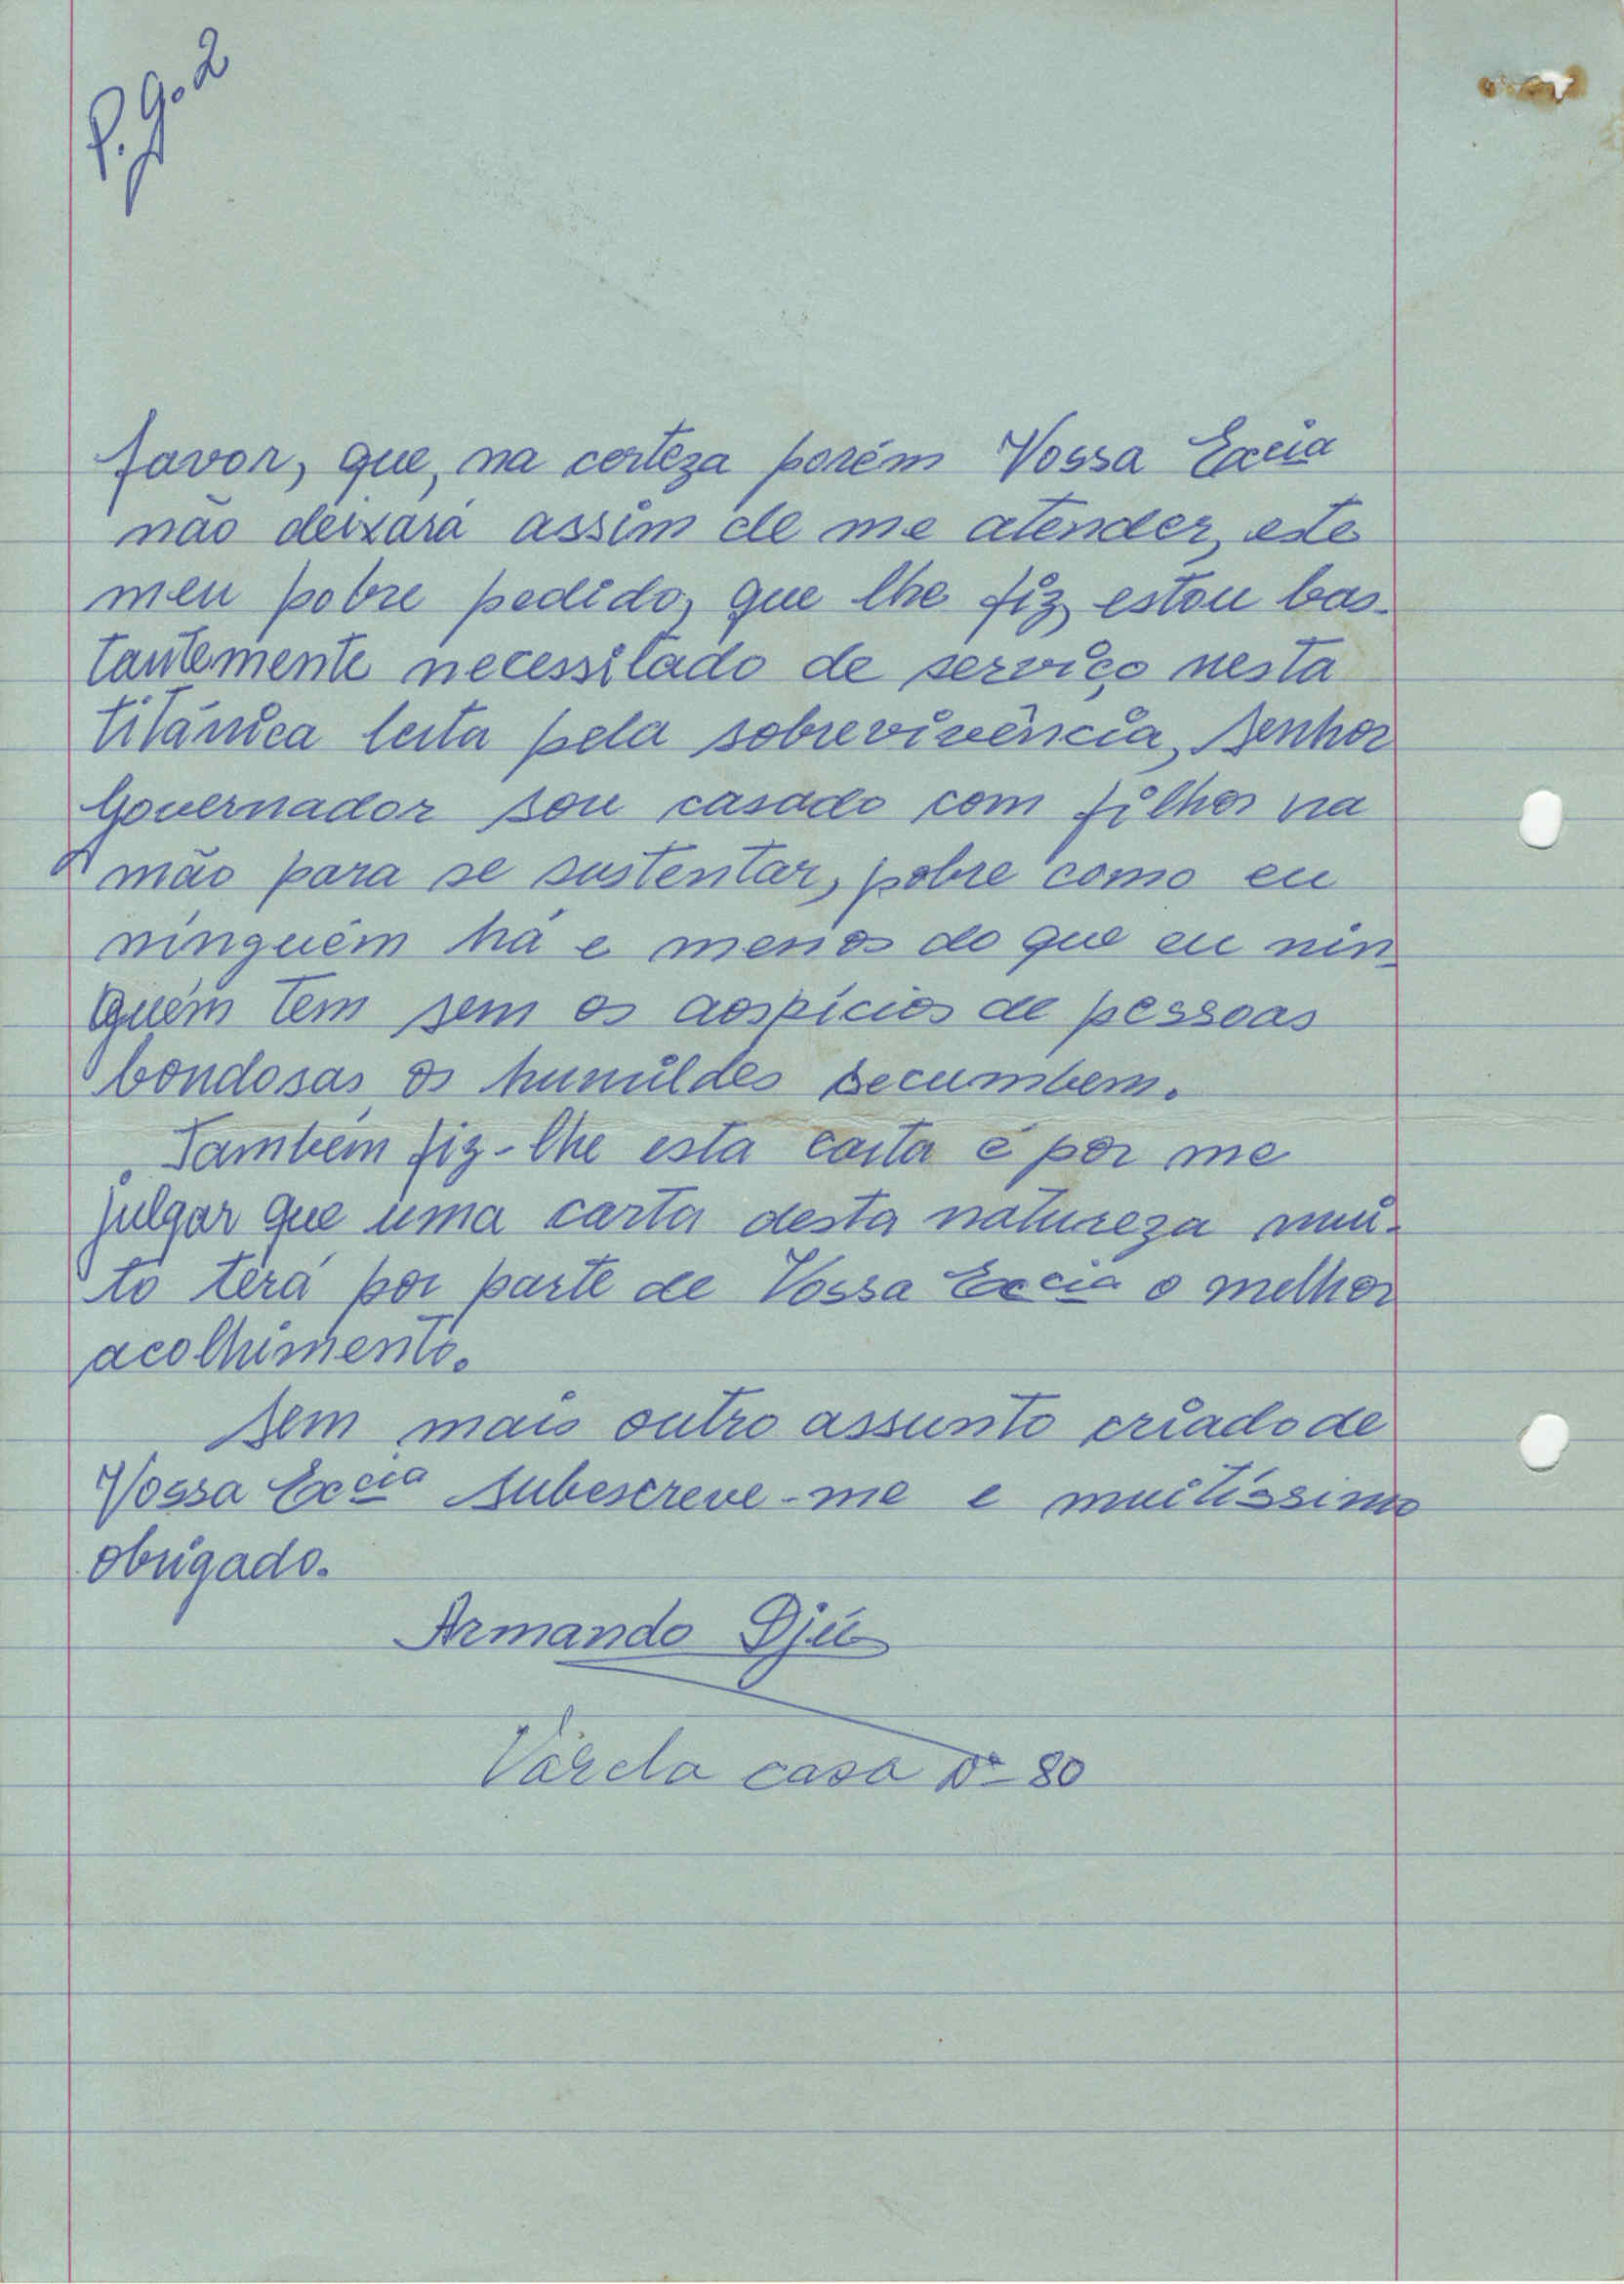 P.g.2
favor, que, na certeza porém Vossa Excia
não deixará assim de me atender, este
meu pobre pedido, que lhe fiz, estou bas-
tantemente necessitado de serviço nesta
titánica luta pela sobrevivência, Senhor
Governador sou casado com filhos na
mão para se sustentar, pobre como eu
ninguém há e menos do que eu nin-
guém tem sem os aospícios de pessoas
bondosas, os humildes secumbem.
Também fiz-lhe esta carta é por me
julgar que uma carta desta natureza mui-
to terá por parte de Vossa Excia o melhor
acolhimento.
Sem mais outro assunto criado de
Vossa Excia subescreve-me e muitíssimo
obrigado.
Armando Djú
Varela casa Nº 80